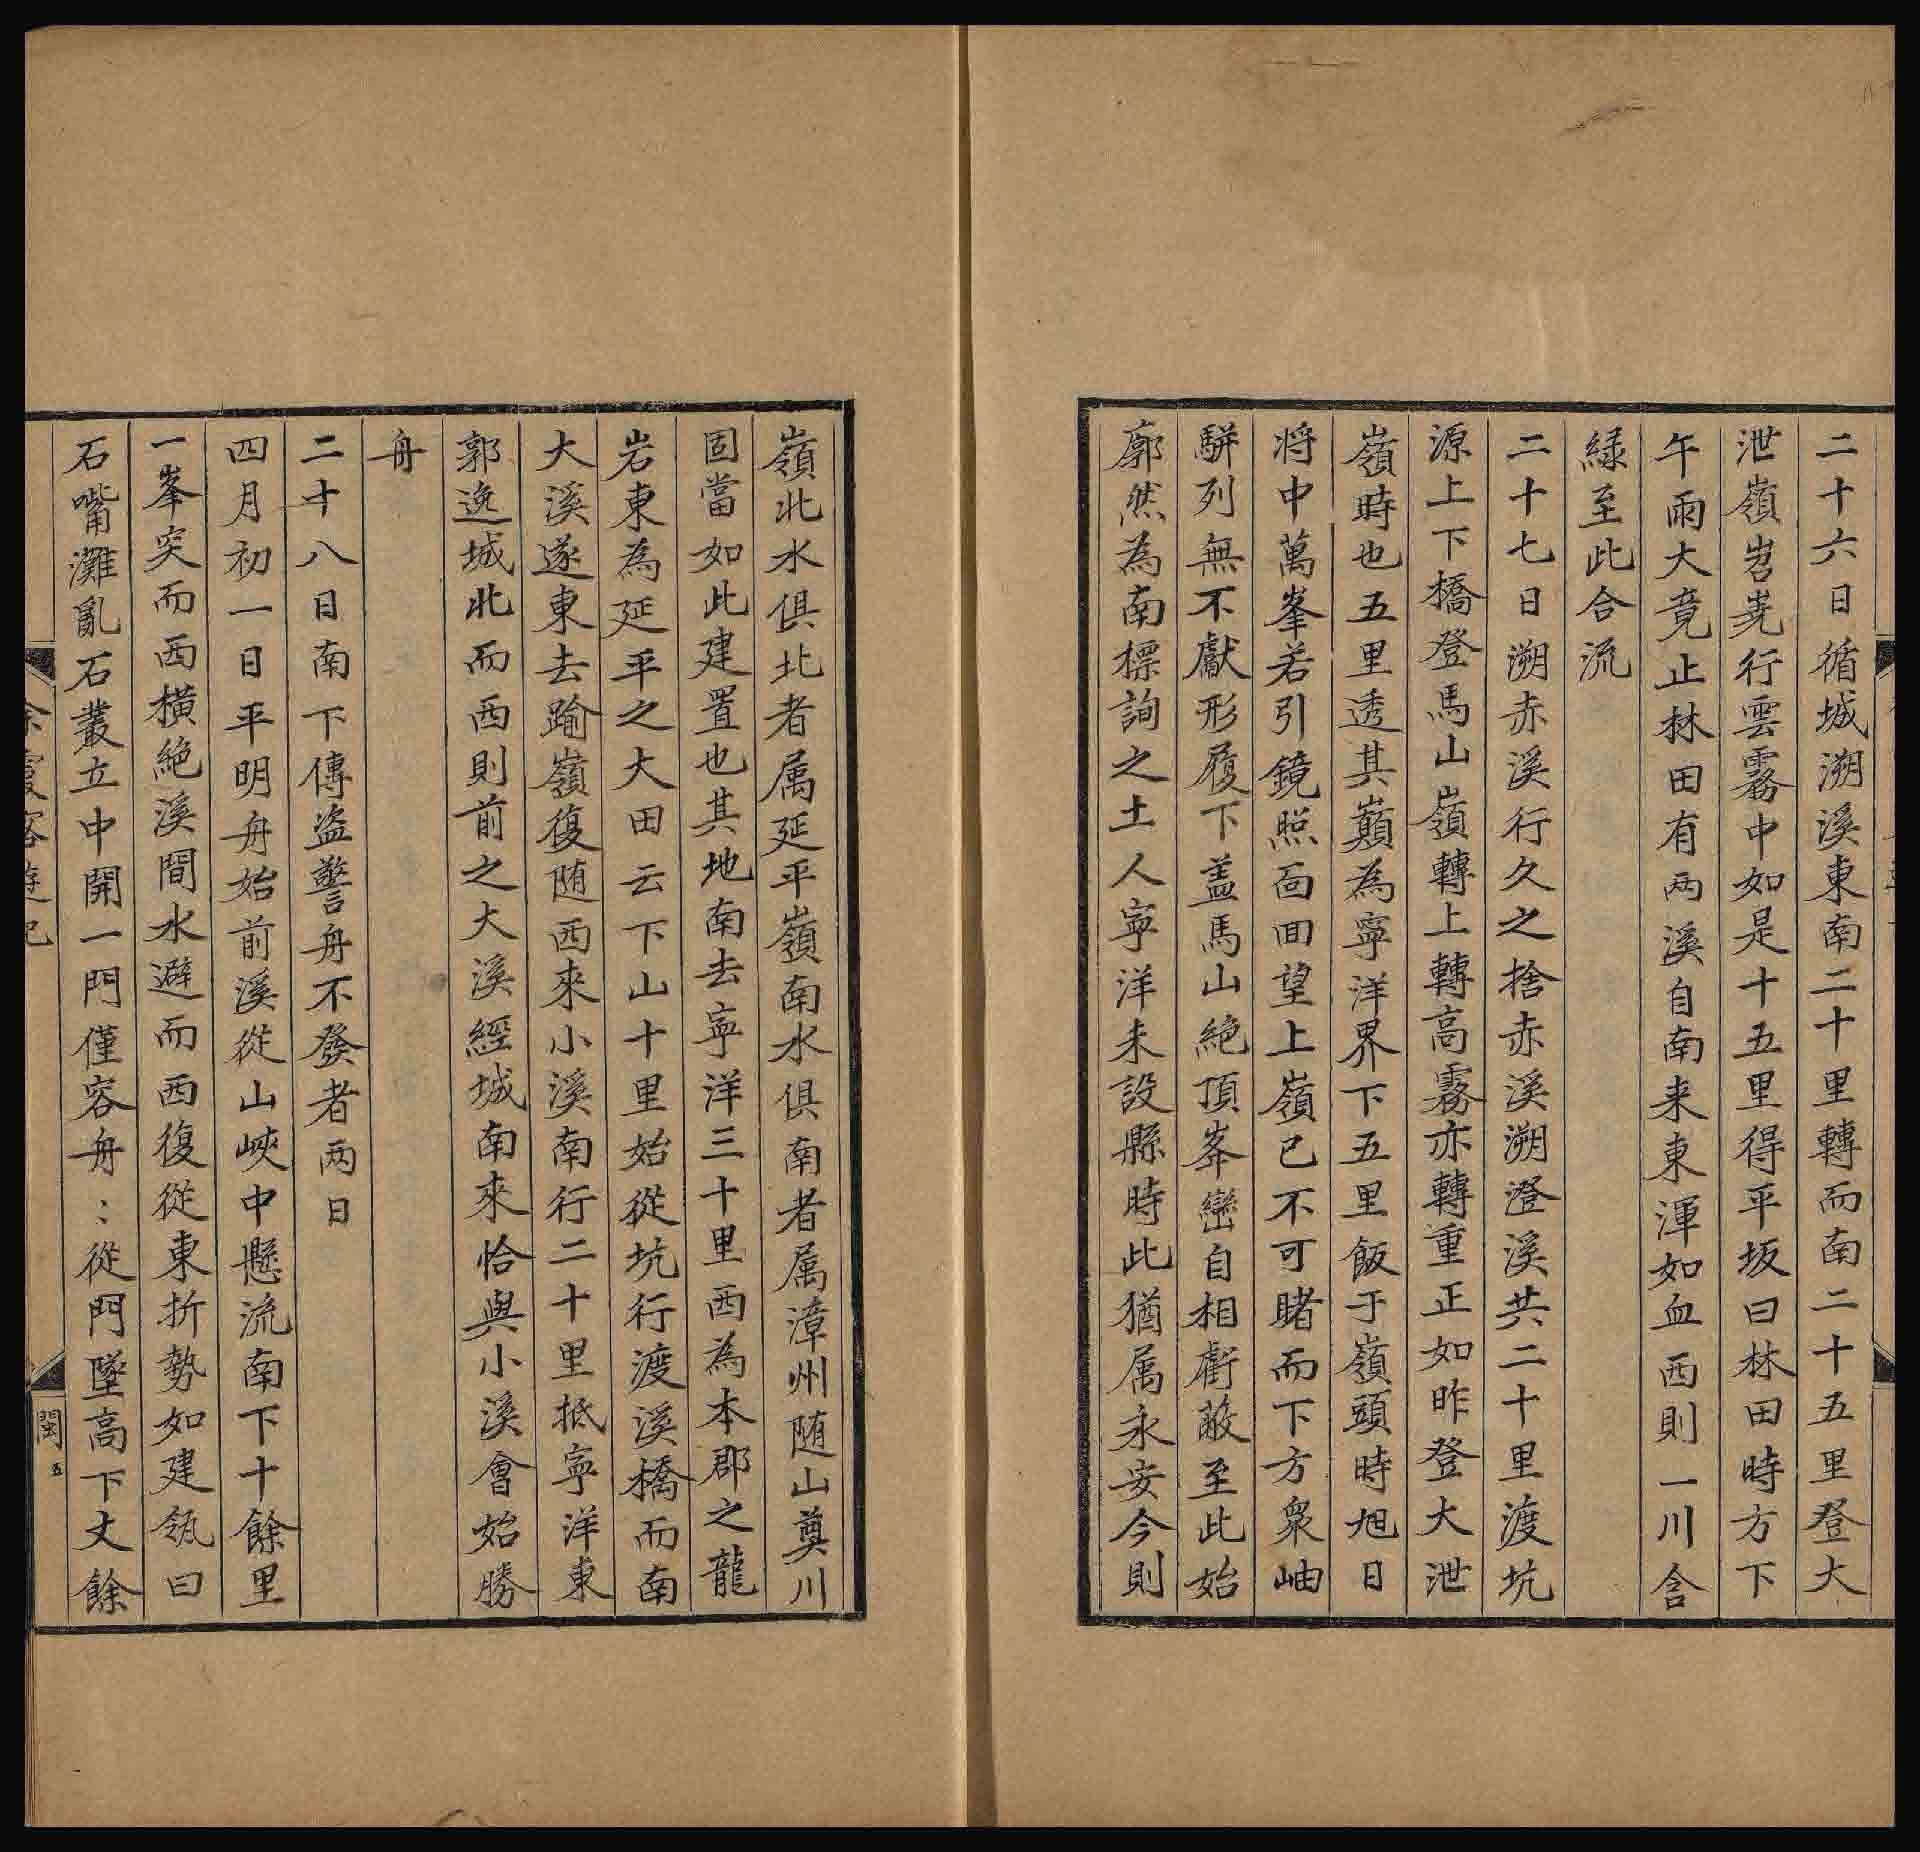 二十六日循城溯溪東南二十里轉而南二十五里登大
泄嶺岧嶤行雲霧中如是十五里得平坂曰林田時方下
午雨大竟止林田有两溪自南来東渾如血西則一川含
緑至此合流
二十七日溯赤溪行久之捨赤溪溯澄溪共二十里渡坑
源上下橋登馬山嶺轉上轉高霧亦轉重正如昨登大泄
嶺時也五里透其巔為寧洋界下五里飯于嶺頭時旭日
将中萬峯若引鏡照面回望上嶺已不可睹而下方衆岫
駢列無不獻形履下盖馬山絶頂峯巒自相虧蔽至此始
廓然為南標詢之土人寧洋未設縣時此猶属永安今則
嶺北水俱北者属延平嶺南水俱南者属漳州随山奠川
固當如此建置也其地南去寧洋三十里西為本郡之龍
岩東為延平之大田云下山十里始從坑行渡溪橋而南
大溪遂東去踰嶺復随西來小溪南行二十里抵寧洋東
郭逸城北而西則前之大溪經城南來恰與小溪會始勝
舟
二十八日南下傳盗警舟不發者两日
四月初一日平明舟始前溪從山峽中懸流南下十餘里
一峯突而西横絶溪間水避而西復從東折勢如建瓴曰
石嘴灘亂石叢立中開一門僅容舟：從門墜高下丈餘
徐霞客遊記
閩 五